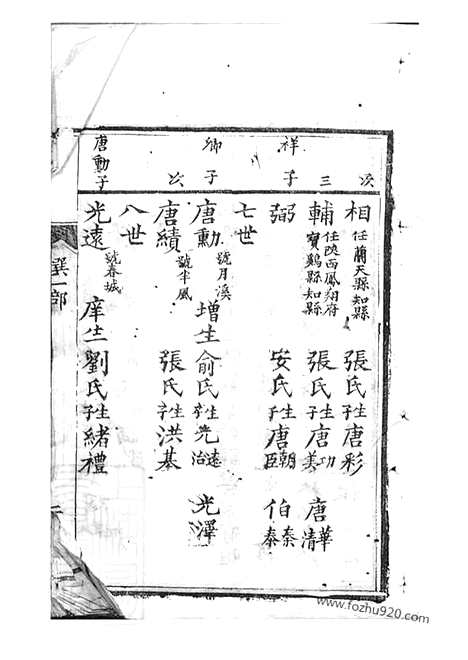 次
相 任蘭天縣知縣 張氏生子唐彩
三
輔 任陝西鳳翔府寶鷄縣知縣 張氏生子唐功 唐美 唐華 清
祥子
弼 安氏生子唐朝 唐臣 伯秦 伯泰
七世
卿子
唐勳 號月溪 增生 俞氏生子光遠 光治 光澤
次
唐績 號半風 張氏生子洪基
八世
唐勳子
光遠 號春城 庠生 劉氏生子緒禮
譔一部
www.fozhu920.com